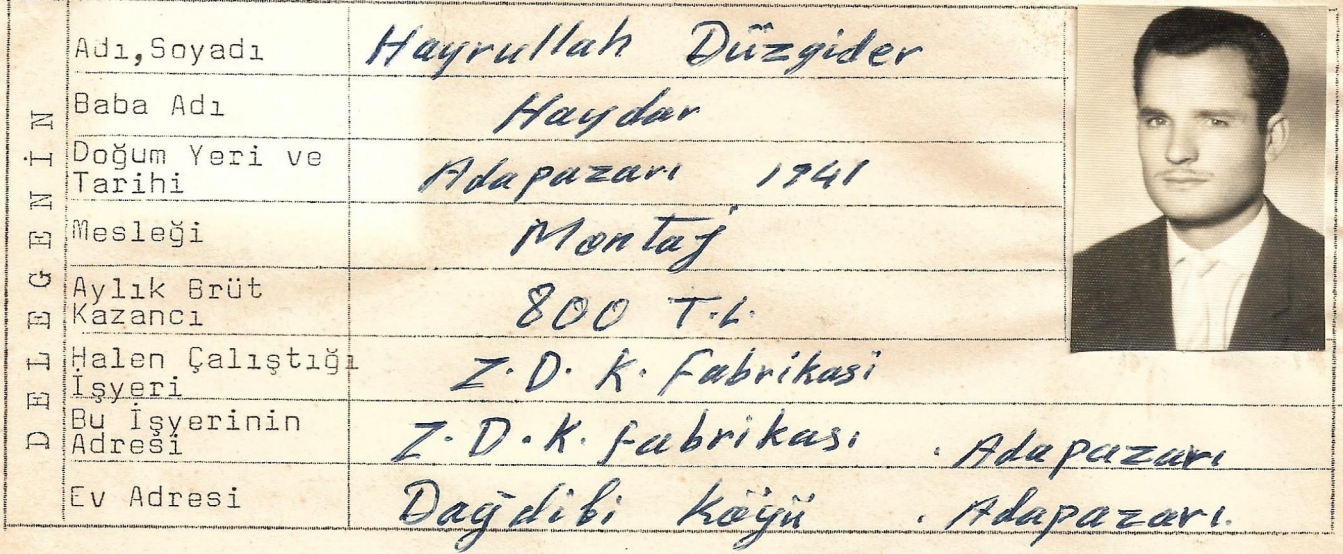 DELEGENİN
Adı,Soyadı Hayrullah Düzgider
Baba Adı Haydar
Doğum Yeri ve
Tarihi Adapazarı 1941
Mesleği Montaj
Aylık Brüt
Kazancı 800 T.L.
Halen Çalıştığı
İşyeri Z.D.K. Fabrikasi
Bu İşyerinin
Adresi Z.D.K. fabrikası . Adapazarı
Ev Adresi Dağdibi Köyü . Adapazarı.